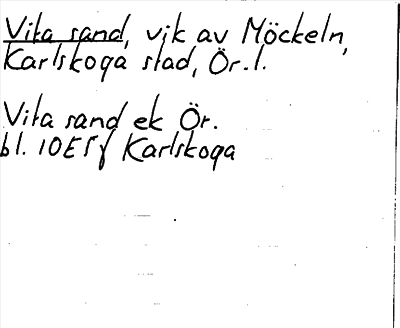 Vita sand, vik av Möckeln,
Karlskoga stad, Ör. l.
Vita sand ek Ör.
bl. 10E5f Karlskoga